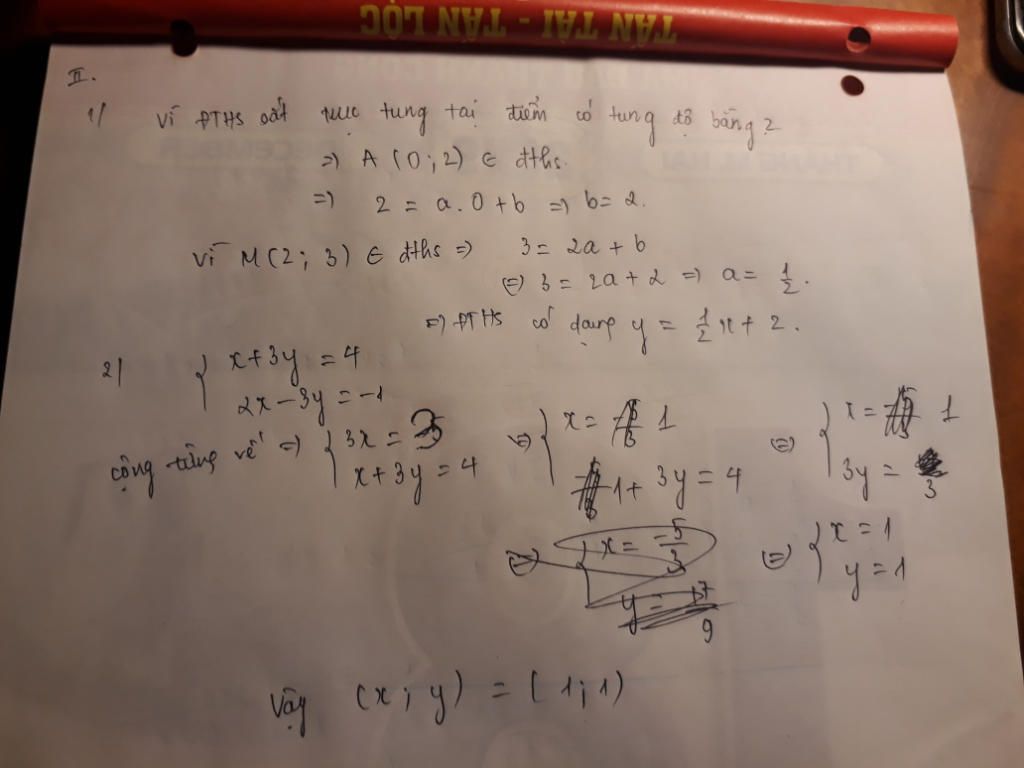 TÂN TÀI - TÂN LỘC
II.
1/ Vì ĐTHS cắt trục tung tại điểm có tung độ bằng 2
=> A (0; 2) ∈ đths.
=> 2 = a.0 + b => b = 2.
Vì M(2; 3) ∈ đths => 3 = 2a + b
<=> 3 = 2a + 2 => a = 1/2.
=> ĐTHS có dạng y = 1/2 x + 2.
2/ { x + 3y = 4
2x - 3y = -1
cộng từng vế => { 3x = 3 <=> { x = 1 <=> { x = 1
x + 3y = 4 1 + 3y = 4 3y = 3
<=> { x = -5/3 <=> { x = 1
y = 17/9 y = 1
Vậy (x; y) = (1; 1)